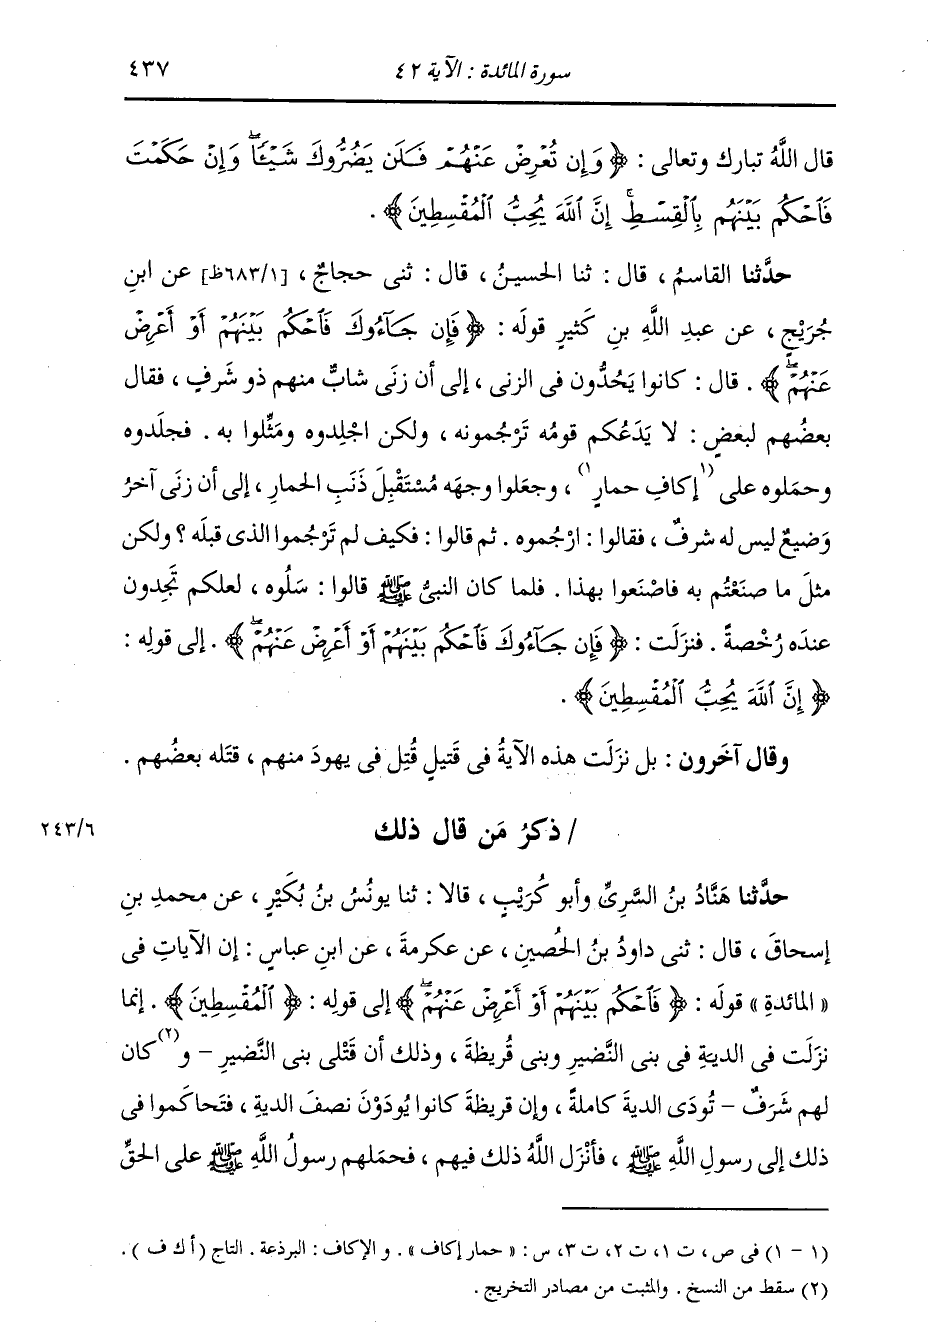 سورة المائدة : الآية ٤٢ ٤٣٧
قال اللَّهُ تبارك وتعالى : ﴿ وَإِن تُعْرِضْ عَنْهُمْ فَلَن يَضُرُّوكَ شَيْـًٔا ۖ وَإِنْ حَكَمْتَ
فَٱحْكُم بَيْنَهُم بِٱلْقِسْطِ ۚ إِنَّ ٱللَّهَ يُحِبُّ ٱلْمُقْسِطِينَ ﴾ .
حدَّثنا القاسمُ ، قال : ثنا الحسينُ ، قال : ثنى حجاجٌ ، [٦٨٣/١ظ] عن ابنِ
جُرَيْجٍ ، عن عبدِ اللَّهِ بنِ كَثيرٍ قولَه : ﴿ فَإِن جَآءُوكَ فَٱحْكُم بَيْنَهُمْ أَوْ أَعْرِضْ
عَنْهُمْ ۖ ﴾ . قال : كانوا يَحُدُّون فى الزنى ، إلى أن زنَى شابٌّ منهم ذو شَرفٍ ، فقال
بعضُهم لبعضٍ : لا يَدَعُكم قومُه تَرْجُمونه ، ولكن اجْلِدوه ومَثِّلوا به . فجلَدوه
وحمَلوه على (١إكافِ حمارٍ١) ، وجعَلوا وجهَه مُسْتَقْبِلَ ذَنَبِ الحمارِ ، إلى أن زنَى آخرُ
وَضيعٌ ليس له شرفٌ ، فقالوا : ارْجُموه . ثم قالوا : فكيف لم تَرْجُموا الذى قبلَه ؟ ولكن
مثلَ ما صنَعْتُم به فاصْنَعوا بهذا . فلما كان النبىُّ ﷺ قالوا : سَلُوه ، لعلكم تَجِدون
عندَه رُخْصةً . فنزَلَت : ﴿ فَإِن جَآءُوكَ فَٱحْكُم بَيْنَهُمْ أَوْ أَعْرِضْ عَنْهُمْ ۖ ﴾ . إلى قولِه :
﴿ إِنَّ ٱللَّهَ يُحِبُّ ٱلْمُقْسِطِينَ ﴾ .
وقال آخَرون : بل نزَلَت هذه الآيةُ فى قَتيلٍ قُتِل فى يهودَ منهم ، قتَله بعضُهم .
/ ذكرُ مَن قال ذلك ٢٤٣/٦
حدَّثنا هَنَّادُ بنُ السَّرِىِّ وأبو كُرَيْبٍ ، قالا : ثنا يونُسُ بنُ بُكَيْرٍ ، عن محمدِ بنِ
إسحاقَ ، قال : ثنى داودُ بنُ الحُصينِ ، عن عكرمةَ ، عن ابنِ عباسٍ : إن الآياتِ فى
« المائدةِ » قولَه : ﴿ فَٱحْكُم بَيْنَهُمْ أَوْ أَعْرِضْ عَنْهُمْ ۖ ﴾ إلى قولِه : ﴿ ٱلْمُقْسِطِينَ ﴾ . إنما
نزَلَت فى الديَةِ فى بنى النَّضيرِ وبنى قُريظةَ ، وذلك أن قَتْلى بنى النَّضيرِ – و(٢)كان
لهم شَرَفٌ – تُودَى الديةَ كاملةً ، وإن قريظةَ كانوا يُودَوْنَ نصفَ الديةِ ، فتَحاكموا فى
ذلك إلى رسولِ اللَّهِ ﷺ ، فأنْزَل اللَّهُ ذلك فيهم ، فحمَلهم رسولُ اللَّهِ ﷺ على الحقِّ
(١ – ١) فى ص، ت ١، ت ٢، ت ٣، س : « حمار إكاف » . و الإكاف : البرذعة . التاج (أ ك ف ) .
(٢) سقط من النسخ . والمثبت من مصادر التخريج .